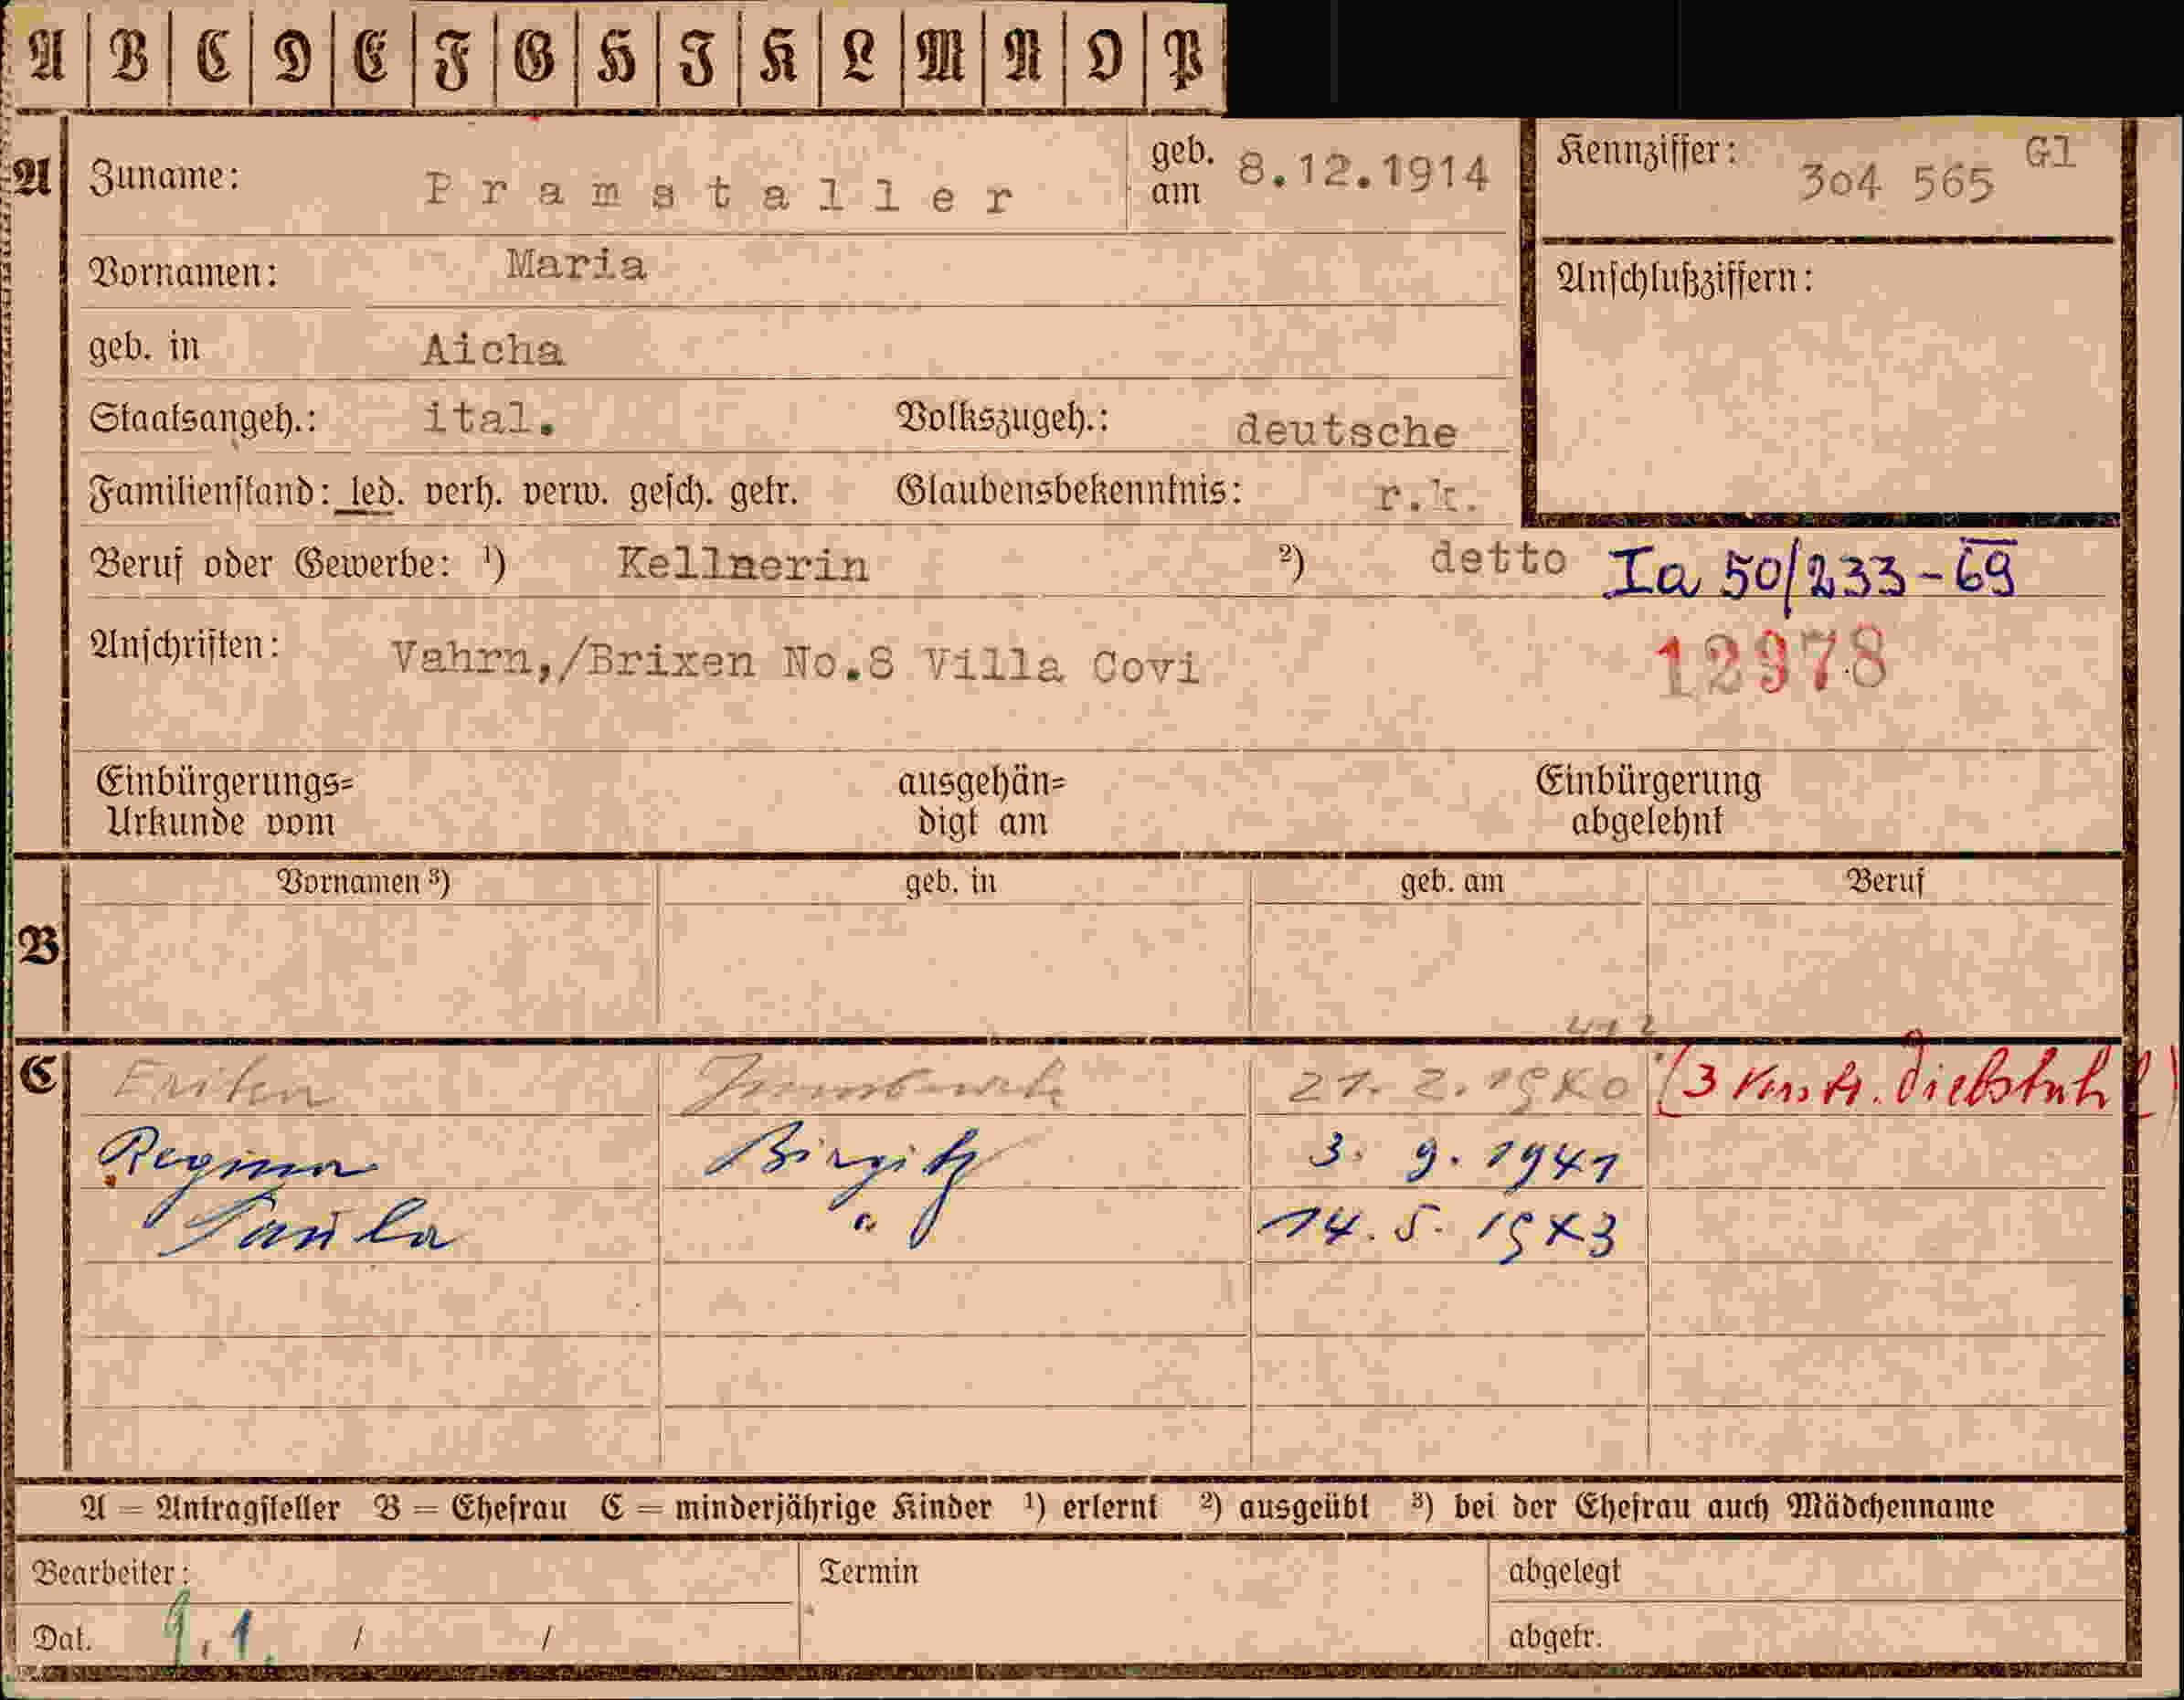 A B C D E F G H I K L M N O P
A Zuname: Pramstaller geb. am 8.12.1914 Kennziffer: 304 565 Gl
Vornamen: Maria Anschlußziffern:
geb. in Aicha
Staatsangeh.: ital. Volkszugeh.: deutsche
Familienstand: led. verh. verw. gesch. getr. Glaubensbekenntnis: r.k.
Beruf oder Gewerbe: ¹) Kellnerin ²) detto Ia 50/233-69
Anschriften: Vahrn,/Brixen No.8 Villa Covi 12978
Einbürgerungs= ausgehän= Einbürgerung
Urkunde vom digt am abgelehnt
Vornamen ³) geb. in geb. am Beruf
B
C Erika Innsbruck 21. 2. 1940 (3 Diebstahl)
Regina Birgitz 3. 9. 1941
Paula " 14. 5. 1943
A = Antragsteller B = Ehefrau C = minderjährige Kinder ¹) erlernt ²) ausgeübt ³) bei der Ehefrau auch Mädchenname
Bearbeiter: Termin abgelegt
Dat. 9.1. / / abgetr.